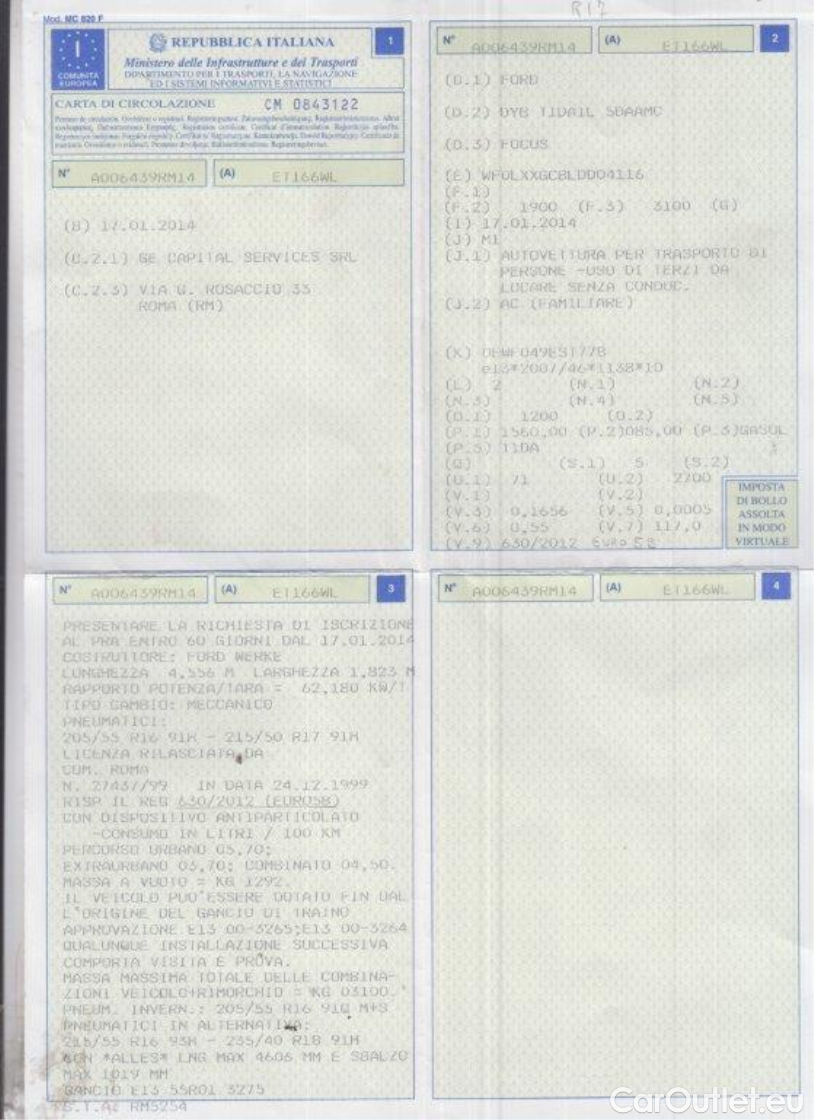 R17
Mod. MC 820 F
REPUBBLICA ITALIANA
1
Ministero delle Infrastrutture e dei Trasporti
DIPARTIMENTO PER I TRASPORTI, LA NAVIGAZIONE
ED I SISTEMI INFORMATIVI E STATISTICI
I
COMUNITÀ
EUROPEA
CARTA DI CIRCOLAZIONE CM 0843122
N° A006439RM14 (A) ET166WL
(B) 17.01.2014
(C.2.1) GE CAPITAL SERVICES SRL
(C.2.3) VIA G. ROSACCIO 33
ROMA (RM)
N° A006439RM14 (A) ET166WL 2
(D.1) FORD
(D.2) DYB T1DA1L 5DAAMC
(D.3) FOCUS
(E) WF0LXXGCBLDD04116
(F.1)
(F.2) 1900 (F.3) 3100 (G)
(I) 17.01.2014
(J) M1
(J.1) AUTOVETTURA PER TRASPORTO DI
PERSONE -USO DI TERZI DA
LOCARE SENZA CONDUC.
(J.2) AC (FAMILIARE)
(K) OEWF049EST77B
e13*2007/46*1138*10
(L) 2 (N.1) (N.2)
(N.3) (N.4) (N.5)
(O.1) 1200 (O.2)
(P.1) 1560,00 (P.2)085,00 (P.3)GASOL
(P.5) T1DA
(Q) (S.1) 5 (S.2)
(U.1) 71 (U.2) 2700
(V.1) (V.2)
(V.3) 0,1656 (V.5) 0,0005
(V.6) 0,55 (V.7) 117,0
(V.9) 630/2012 EURO 5B
IMPOSTA
DI BOLLO
ASSOLTA
IN MODO
VIRTUALE
N° A006439RM14 (A) ET166WL 3
PRESENTARE LA RICHIESTA DI ISCRIZIONE
AL PRA ENTRO 60 GIORNI DAL 17.01.2014
COSTRUTTORE: FORD WERKE
LUNGHEZZA 4,556 M LARGHEZZA 1,823 M
RAPPORTO POTENZA/TARA = 62,180 KW/T
TIPO CAMBIO: MECCANICO
PNEUMATICI:
205/55 R16 91H - 215/50 R17 91H
LICENZA RILASCIATA DA
COM. ROMA
N. 27437/99 IN DATA 24.12.1999
RISP IL REG 630/2012 (EURO5B)
CON DISPOSITIVO ANTIPARTICOLATO
-CONSUMO IN LITRI / 100 KM
PERCORSO URBANO 05,70;
EXTRAURBANO 03,70; COMBINATO 04,50.
MASSA A VUOTO = KG 1292.
IL VEICOLO PUO'ESSERE DOTATO FIN DAL
L'ORIGINE DEL GANCIO DI TRAINO
APPROVAZIONE E13 00-3265;E13 00-3264
QUALUNQUE INSTALLAZIONE SUCCESSIVA
COMPORTA VISITA E PROVA.
MASSA MASSIMA TOTALE DELLE COMBINA-
ZIONI VEICOLO+RIMORCHIO = KG 03100.
PNEUM. INVERN.: 205/55 R16 91Q M+S
PNEUMATICI IN ALTERNATIVA:
215/55 R16 93H - 235/40 R18 91H
CON *ALLES* LNG MAX 4606 MM E SBALZO
MAX 1019 MM
GANCIO E13 55R01 3275
S.T.A: RM5254
N° A006439RM14 (A) ET166WL 4
CarOutlet.eu